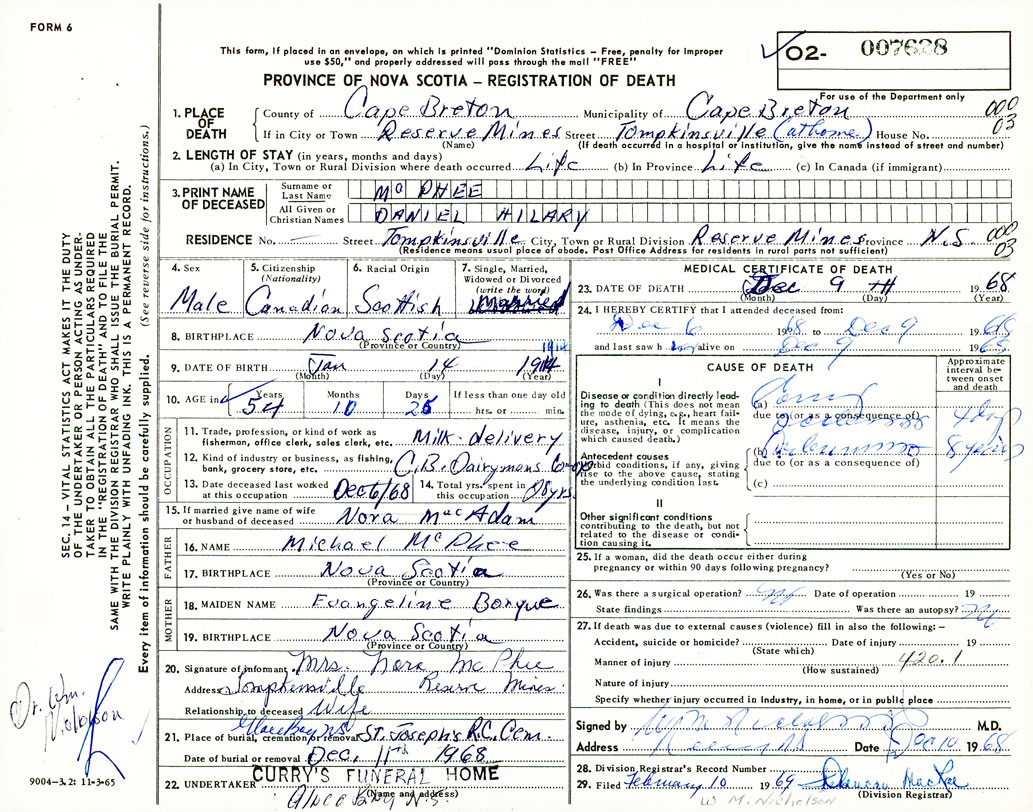 FORM 6
This form, if placed in an envelope, on which is printed "Dominion Statistics – Free, penalty for improper
use $50," and properly addressed will pass through the mail "FREE"
O2- 007638
PROVINCE OF NOVA SCOTIA – REGISTRATION OF DEATH
For use of the Department only
1. PLACE OF DEATH County of Cape Breton Municipality of Cape Breton 000
If in City or Town Reserve Mines Street Tompkinsville (at home) House No. 03
(Name) (If death occurred in a hospital or institution, give the name instead of street and number)
2. LENGTH OF STAY (in years, months and days)
(a) In City, Town or Rural Division where death occurred Life (b) In Province Life (c) In Canada (if immigrant)
3. PRINT NAME OF DECEASED Surname or Last Name Mc PHEE
All Given or Christian Names DANIEL HILARY
RESIDENCE No. — Street Tompkinsville City, Town or Rural Division Reserve Mines Province N.S 000 03
(Residence means usual place of abode. Post Office Address for residents in rural parts not sufficient)
4. Sex Male
5. Citizenship (Nationality) Canadian
6. Racial Origin Scottish
7. Single, Married, Widowed or Divorced (write the word) Married
8. BIRTHPLACE Nova Scotia
(Province or Country)
1914
9. DATE OF BIRTH Jan 14 1914
(Month) (Day) (Year)
10. AGE in Years Months Days If less than one day old
54 10 25 hrs. or min.
OCCUPATION
11. Trade, profession, or kind of work as
fisherman, office clerk, sales clerk, etc. Milk delivery
12. Kind of industry or business, as fishing,
bank, grocery store, etc. C.B. Dairymans Co-op
13. Date deceased last worked
at this occupation Dec 6/68
14. Total yrs. spent in
this occupation 28 yrs.
15. If married give name of wife
or husband of deceased Nora Mac Adam
FATHER
16. NAME Michael Mc Phee
17. BIRTHPLACE Nova Scotia
(Province or Country)
MOTHER
18. MAIDEN NAME Evangeline Borque
19. BIRTHPLACE Nova Scotia
(Province or Country)
20. Signature of informant Mrs. Nora Mc Phee
Address Tompkinsville Reserve Mines
Relationship to deceased Wife
21. Place of burial, cremation or removal Glace Bay NS St. Joseph's R.C. Cem.
Date of burial or removal Dec. 11th 1968
22. UNDERTAKER CURRY'S FUNERAL HOME
(Name and address)
Glace Bay N.S.
MEDICAL CERTIFICATE OF DEATH
23. DATE OF DEATH Dec 9TH 1968
(Month) (Day) (Year)
24. I HEREBY CERTIFY that I attended deceased from:
Dec 6 1968 to Dec 9 1968
and last saw him alive on Dec 9 1968
CAUSE OF DEATH
Approximate interval between onset and death
I
Disease or condition directly leading to death (This does not mean the mode of dying, e.g., heart failure, asthenia, etc. It means the disease, injury, or complication which caused death.)
(a)
due to (or as a consequence of)
Antecedent causes
Morbid conditions, if any, giving rise to the above cause, stating the underlying condition last.
(b)
due to (or as a consequence of)
8 years
(c)
II
Other significant conditions
contributing to the death, but not
related to the disease or condition causing it.
25. If a woman, did the death occur either during
pregnancy or within 90 days following pregnancy?
(Yes or No)
26. Was there a surgical operation? Date of operation 19
State findings Was there an autopsy? No
27. If death was due to external causes (violence) fill in also the following: –
Accident, suicide or homicide? Date of injury 19
(State which)
Manner of injury 420.1
(How sustained)
Nature of injury
Specify whether injury occurred in Industry, in home, or in public place
Signed by W M Nicholson M.D.
Address Date Dec 10 1968
28. Division Registrar's Record Number
29. Filed February 10 1969
(Division Registrar)
W. M. Nicholson
SEC. 14 – VITAL STATISTICS ACT MAKES IT THE DUTY
OF THE UNDERTAKER OR PERSON ACTING AS UNDER-
TAKER TO OBTAIN ALL THE PARTICULARS REQUIRED
IN THE "REGISTRATION OF DEATH" AND TO FILE THE
SAME WITH THE DIVISION REGISTRAR WHO SHALL ISSUE THE BURIAL PERMIT.
WRITE PLAINLY WITH UNFADING INK. THIS IS A PERMANENT RECORD.
Every item of information should be carefully supplied. (See reverse side for instructions.)
Dr. Wm. Nicholson
9004–3.2: 11-3-65